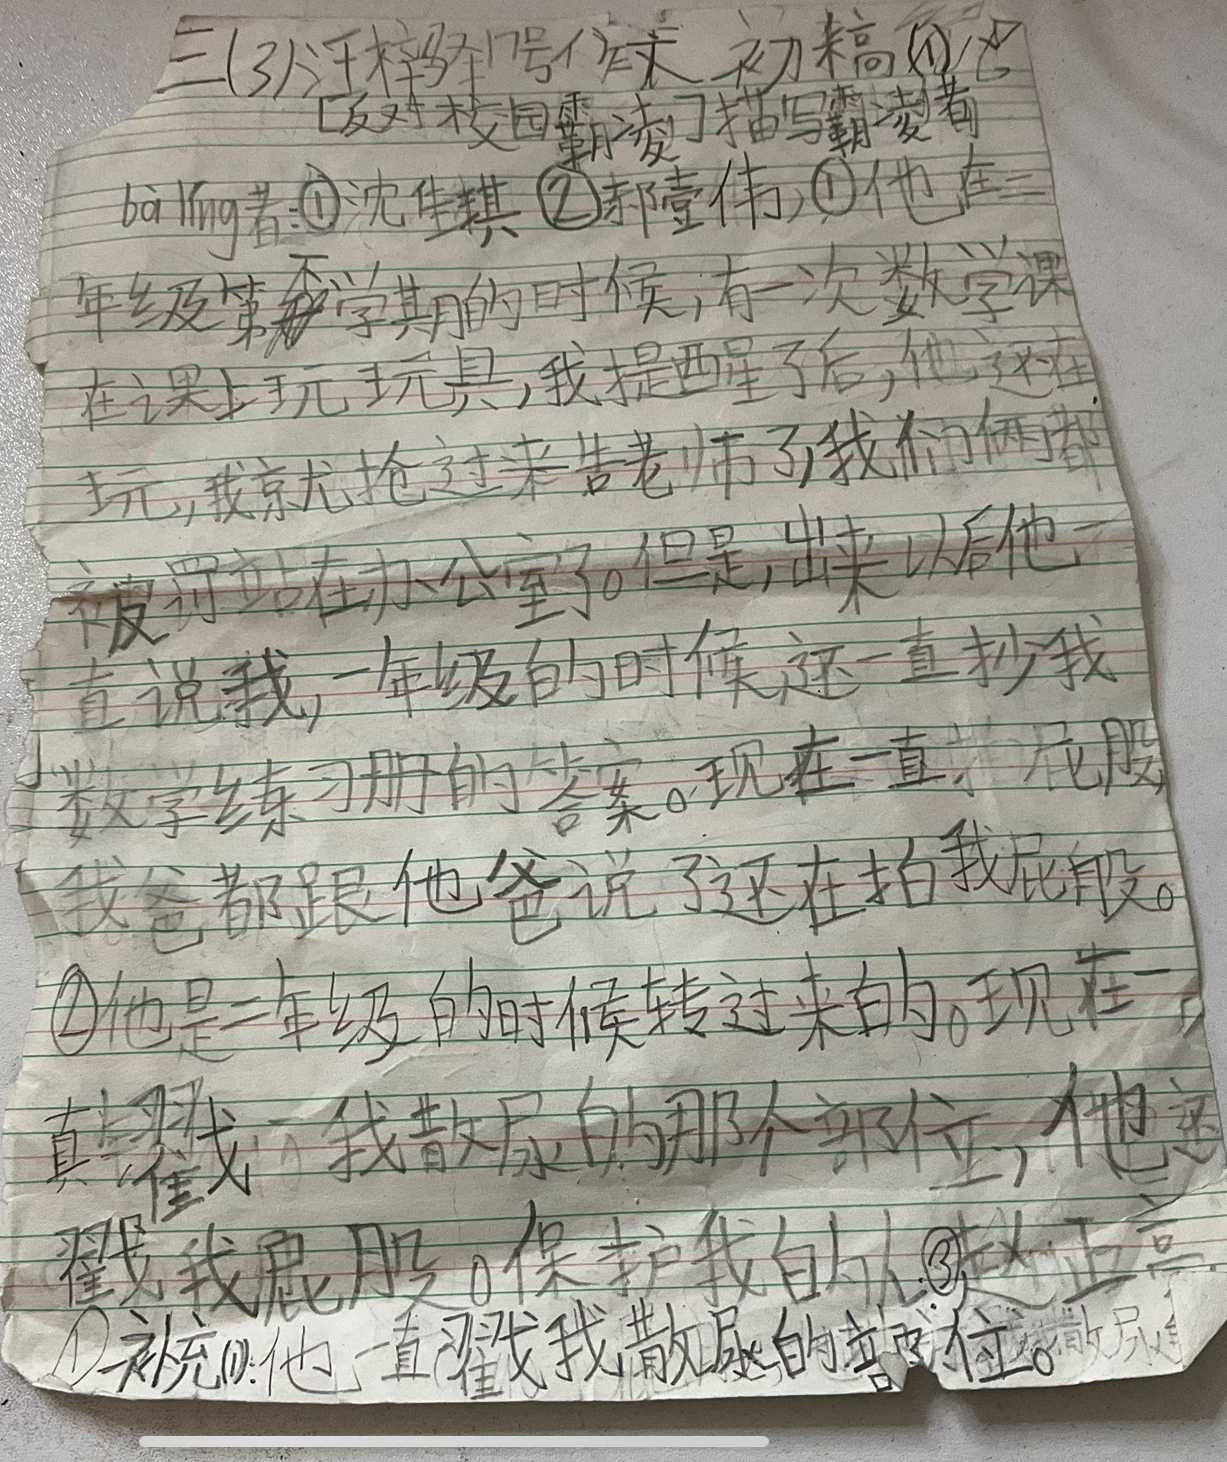 三(3)汪梓骍17号作文 初稿(1)
[反对校园霸凌]描写霸凌者
bà líng者:①沈隹棋 ②郝壹伟,①他在二
年级第下学期的时候,有一次数学课
在课上玩玩具,我提醒了后,他还在
玩,我就抢过来告老师了,我们俩都
被罚站在办公室了。但是,出来以后他一
直说我,一年级的时候,还一直抄我
数学练习册的答案。现在一直拍屁股,
我爸都跟他爸说了还在拍我屁股。
②他是二年级的时候转过来的。现在一
直戳我散尿的那个部位,他还
戳我屁股。保护我的人:③赵正高
①补充(1):他一直戳我散尿的部位。